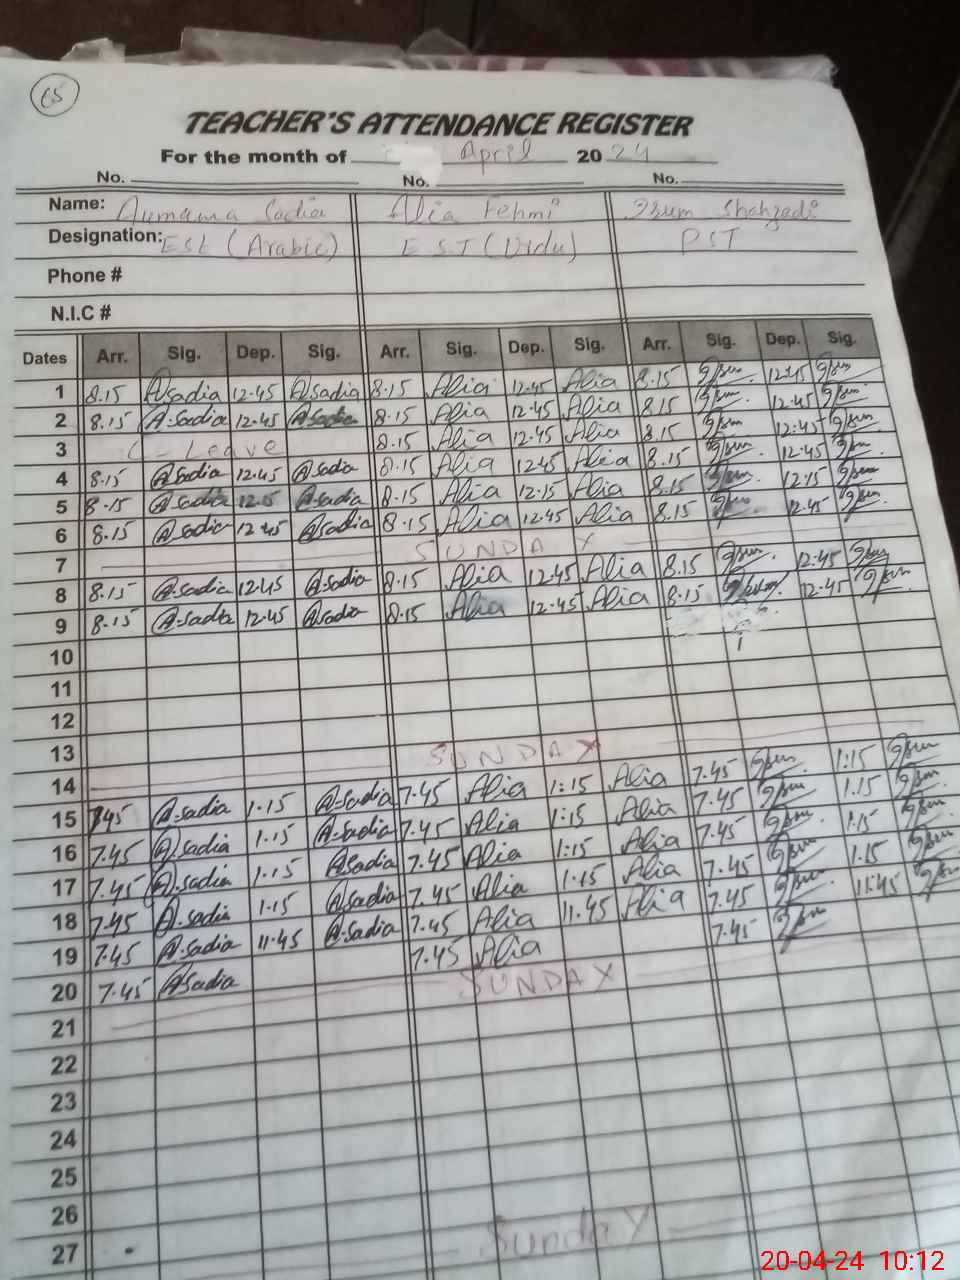 65
TEACHER'S ATTENDANCE REGISTER
For the month of April 2024
No. No. No.
Name: Aumama Sadia Alia Fehmi Irum Shahzadi
Designation: ESE (Arabic) EST (Urdu) PST
Phone #
N.I.C #
Dates Arr. Sig. Dep. Sig. Arr. Sig. Dep. Sig. Arr. Sig. Dep. Sig.
1 8.15 A.sadia 12.45 A.sadia 8.15 Alia 12.45 Alia 8.15 12.45
2 8.15 A.sadia 12.45 A.sadia 8.15 Alia 12.45 Alia 8.15 12.45
3 C-Leave 8.15 Alia 12.45 Alia 8.15 12.45
4 8.15 A.sadia 12.45 A.sadia 8.15 Alia 12.45 Alia 8.15 12.45
5 8.15 A.sadia 12.15 A.sadia 8.15 Alia 12.15 Alia 8.15 12.15
6 8.15 A.sadia 12.45 A.sadia 8.15 Alia 12.45 Alia 8.15 12.45
7 SUNDAY
8 8.15 A.sadia 12.45 A.sadia 8.15 Alia 12.45 Alia 8.15 12.45
9 8.15 A.sadia 12.45 A.sadia 8.15 Alia 12.45 Alia 8.15 12.45
10
11
12
13
14 SUNDAY
15 7.45 A.sadia 1.15 A.sadia 7.45 Alia 1:15 Alia 7.45 1:15
16 7.45 A.sadia 1.15 A.sadia 7.45 Alia 1:15 Alia 7.45 1.15
17 7.45 A.sadia 1.15 A.sadia 7.45 Alia 1:15 Alia 7.45 1.15
18 7.45 A.sadia 1.15 A.sadia 7.45 Alia 1.15 Alia 7.45 1.15
19 7.45 A.sadia 11.45 A.sadia 7.45 Alia 11.45 Alia 7.45 11.45
20 7.45 A.sadia 7.45 Alia 7.45
21 SUNDAY
22
23
24
25
26
27
Sunday
20-04-24 10:12